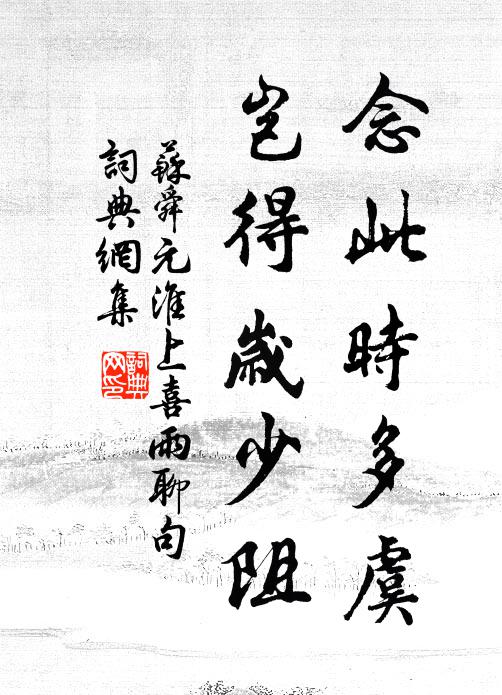 念此時多虞
豈得歲少阻
蘇舜元淮上喜雨聊句
詞典網集
詞典
网印